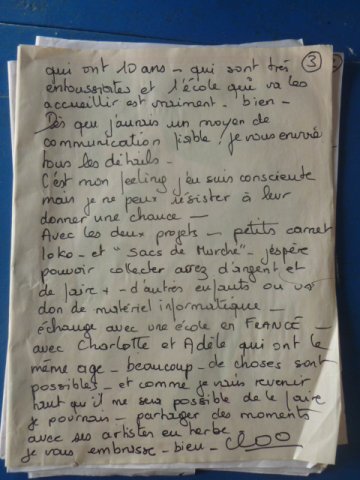 3
qui ont 10 ans - qui sont très
enthousiastes et l'école qui va les
accueillir est vraiment - bien -
Dès que j'aurais un moyen de
communication fiable! je vous enverrai
tous les détails -
C'est mon feeling j'en suis consciente
mais je ne peux résister à leur
donner une chance -
Avec les deux projets - petits carnet
loko - et "Sacs de Marché" - j'espère
pouvoir collecter assez d'argent et
de faire + - d'autres enfants ou
don de matériel informatique -
échange avec une école en FRANCE -
avec Charlotte et Adèle qui ont le
même age - beaucoup - de choses sont
possibles - et comme je vais revenir
tant qu'il me sera possible de le faire
je pourrais - partager des moments
avec ses artistes en herbe
je vous embrasse - bien -